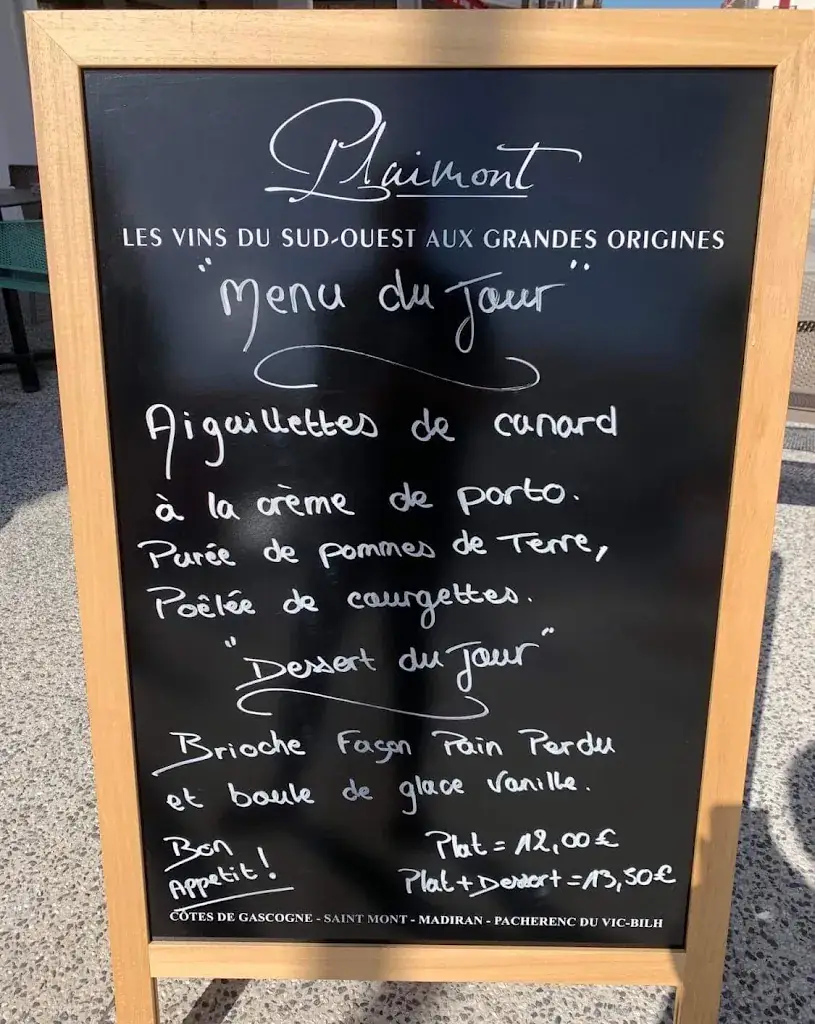 Plaimont
LES VINS DU SUD-OUEST AUX GRANDES ORIGINES
"Menu du Jour"
Aiguillettes de canard
à la crème de porto.
Purée de pommes de Terre,
Poêlée de courgettes.
"Dessert du Jour"
Brioche Façon Pain Perdu
et boule de glace Vanille.
Bon
Appetit!
Plat = 12,00€
Plat + Dessert = 13,50€
CÔTES DE GASCOGNE - SAINT MONT - MADIRAN - PACHERENC DU VIC-BILH